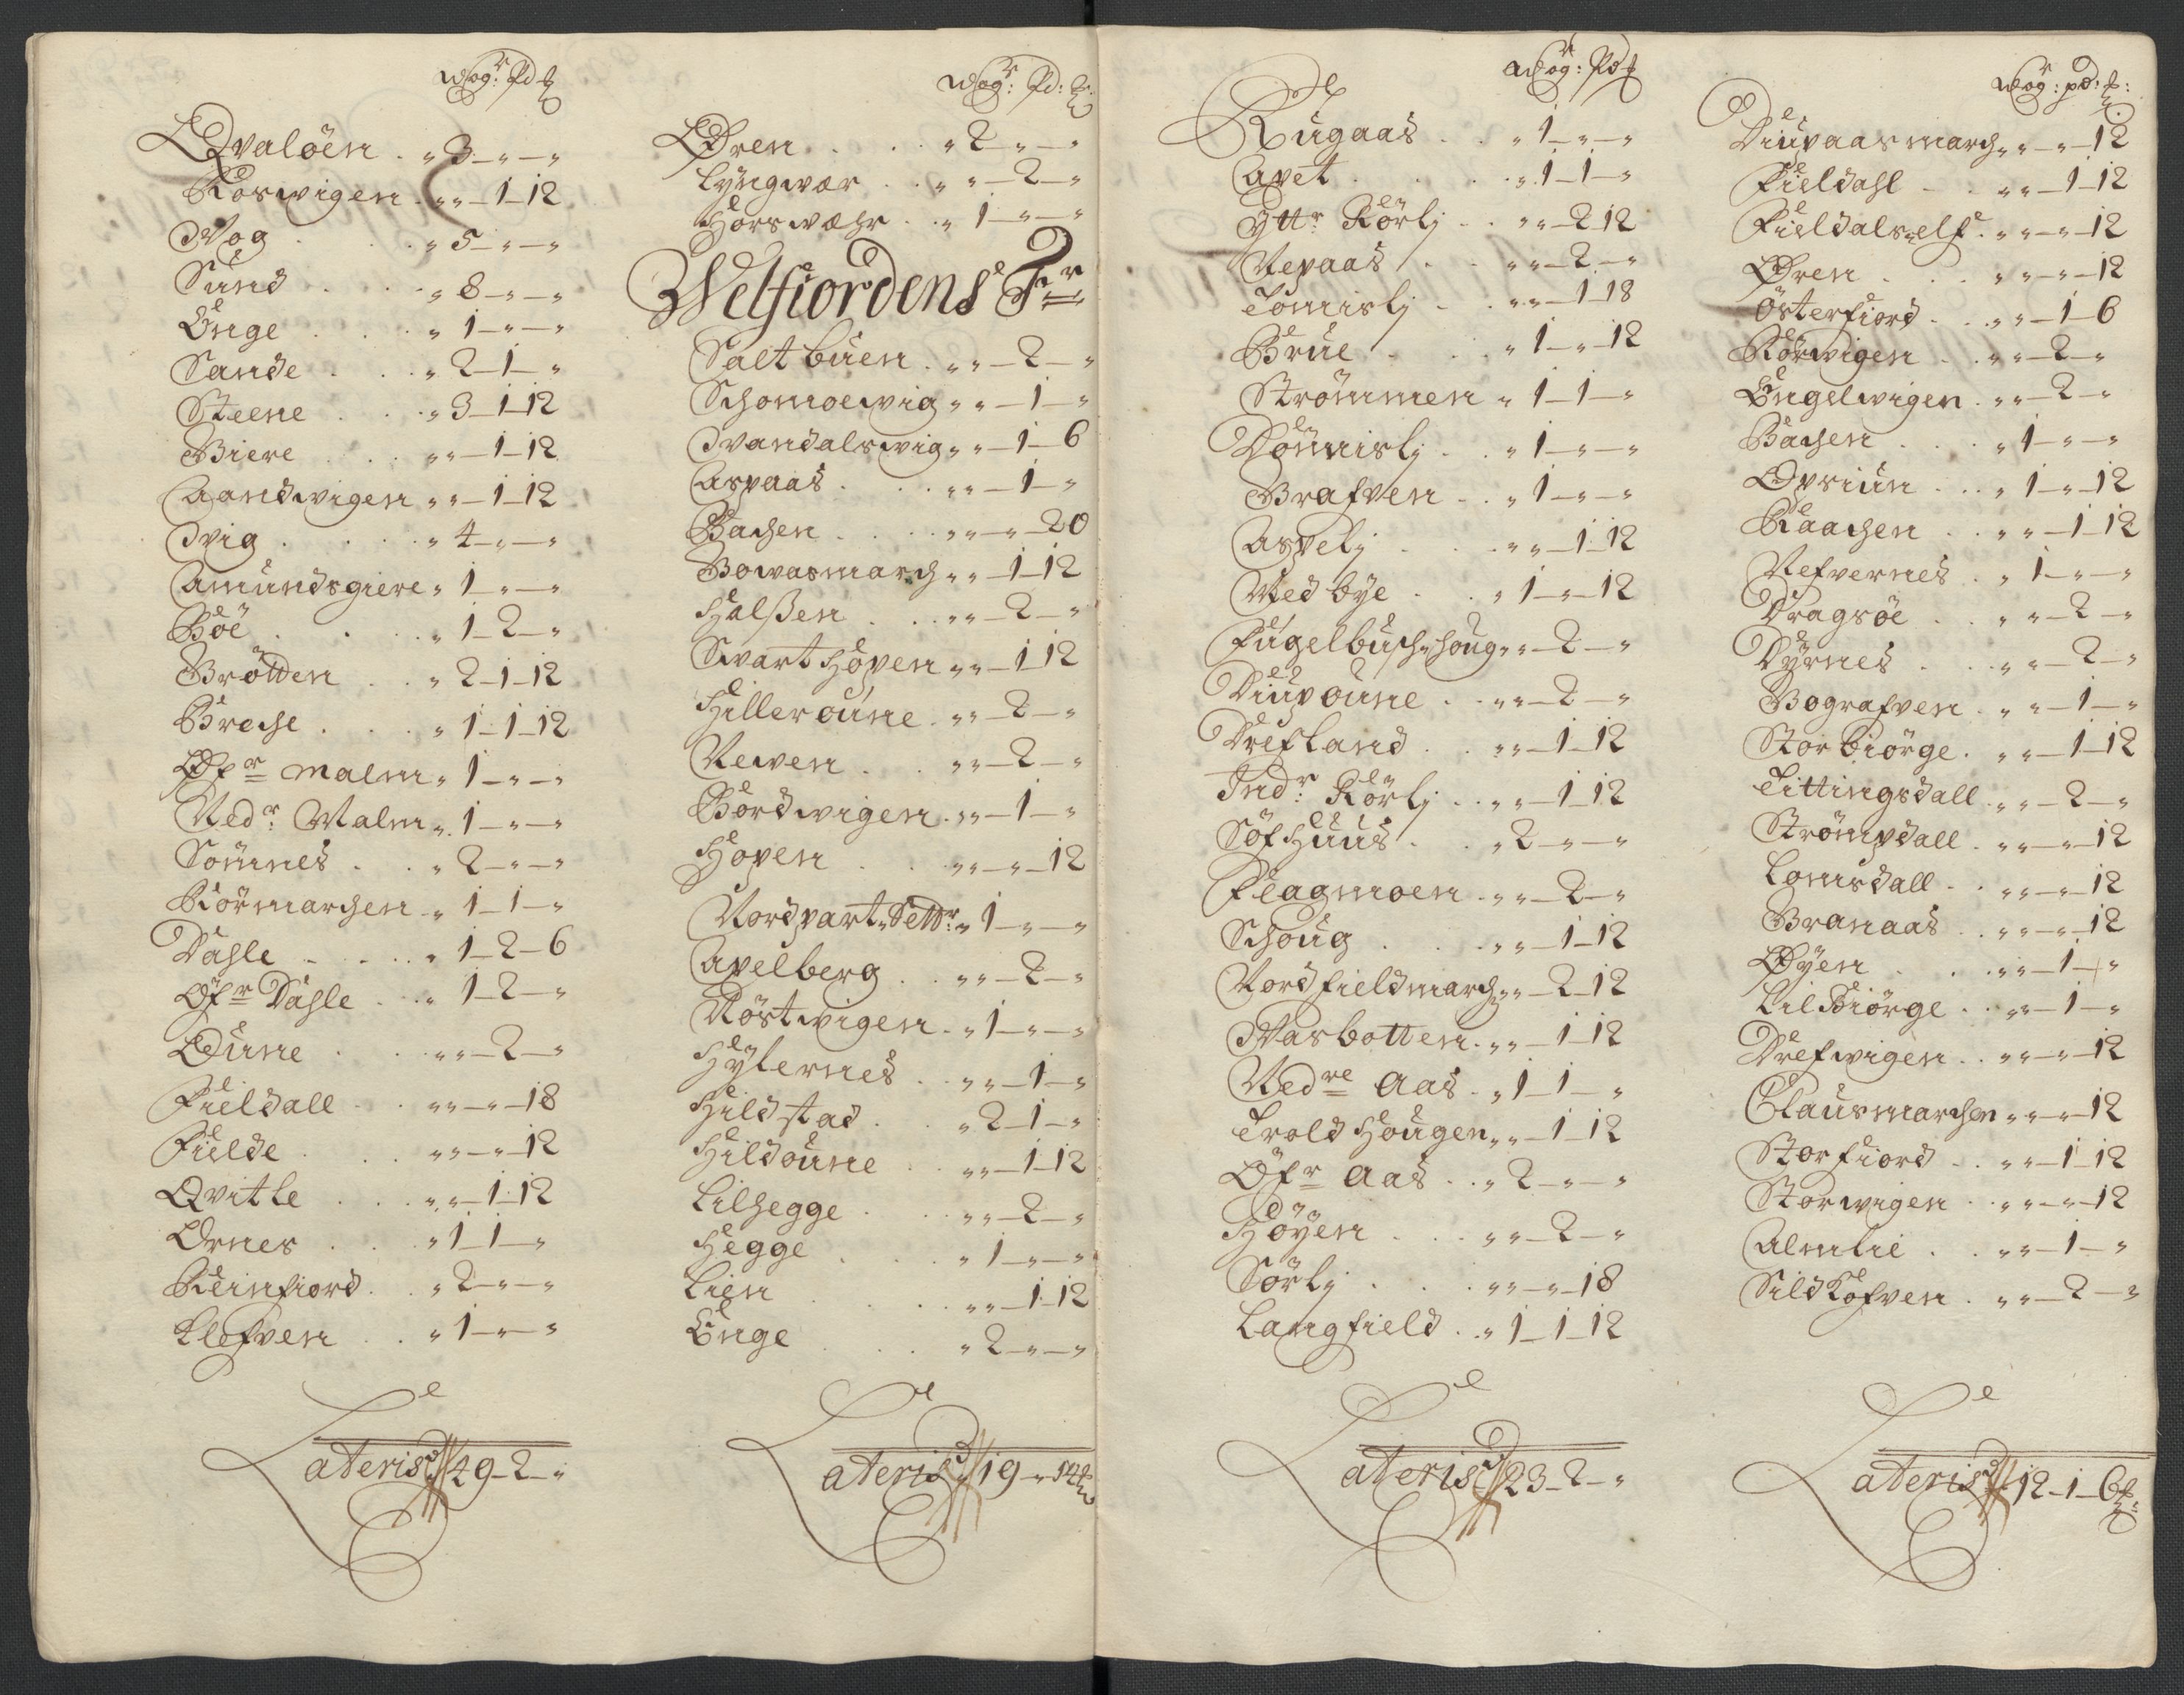 Wog: Pd ℔
Qvalöen . " 3 – " – "
Röswigen . " " – 1 – 12
Wog . . " 5 – " – "
Sund . . " 8 – " – "
Enge . . " 1 – " – "
Sande . . " 2 – 1 – "
Steene . . " 3 – 1 – 12
Biere . . " " – 1 – 12
Aandwigen " " – 1 – 12
Wig . . " 4 – " – "
Amundsgiere " 1 – " – "
Böe . . " 1 – 2 – "
Brötten . . " 2 – 1 – 12
Breche . . " 1 – 1 – 12
Øfr Malm " 1 – " – "
Nedr: Malm " 1 – " – "
Sömnes . . " 2 – " – "
Rörmarchen " 1 – 1 – "
Dahle . . " 1 – 2 – 6
Øfr Dahle . . " 1 – 2 – "
Oune . . " " – 2 – "
Fieldall . . " " – " – 18
Fielde . . " " – " – 12
Qvitle . . " " – 1 – 12
Ornes . . " 1 – 1 – "
Reinfiord . . " 2 – " – "
Klofven . . " 1 – " – "
Lateris 49 – 2 – "
Wog: Pd: ℔:
Øren . . " 2 – " – "
Lyngwær . . " " – 2 – "
Horswæhr . . " 1 – " – "
Welfiordens Fr
Saltbuen . " " – 2 – "
Schomoewig " " – 1 – "
Wandalswig " " – 1 – 6
Aspaas . . " " – 1 – "
Bachen . . " " – " – 20
Bowasmarch " " – 1 – 12
Halßen . . " " – 2 – "
Swarthopen " " – 1 – 12
Hilleroune . " " – 2 – "
Newen . . " " – 2 – "
Bordwigen . " " – 1 – "
Hopen . . " " – " – 12
Nordpart Settr: " 1 – " – "
Apelberg . . " " – 2 – "
Röstwigen . " 1 – " – "
Hylernes . . " " – 1 – "
Hildstad . . " 2 – 1 – "
Hildoune . . " " – 1 – 12
Lilhegge . . " " – 2 – "
Hegge . . " 1 – " – "
Lien . . " " – 1 – 12
Enge . . " 2 – " – "
Lateris 19 – " – 14 ℔
Wog: Pd ℔
Rugaas . . " 1 – " – "
Apet . . " 1 – 1 – "
Yttr Rörlj . . " " – 2 – 12
Nepaas . . " " – 2 – "
Tomislj . . " " – 1 – 18
Brue . . " 1 – " – 12
Strömmen " 1 – 1 – "
Dönnislj . . " 1 – " – "
Brafven . . " 1 – " – "
Aspelj . . " " – 1 – 12
Nedbye . . " 1 – " – 12
Fugelbuschhoug " " – 2 – "
Diupoune . . " " – 2 – "
Drefland . . " " – 1 – 12
Indr: Rörlj . . " " – 1 – 12
Söfhuus . . " 2 – " – "
Flagmoen . " " – 2 – "
Schoug . . " " – 1 – 12
Nordfieldmarch " " – 2 – 12
Wasbotten . " " – 1 – 12
Nedre Aas . " 1 – 1 – "
Troldhougen " " – 1 – 12
Øfr Aas . . " 2 – " – "
Höyen . . " " – 2 – "
Sörlj . . " " – " – 18
Langfield . . " 1 – 1 – 12
Lateris 23 – 2 – "
Wog: pd: ℔:
Diupaasmarch " " – " – 12
Fieldahl . . " " – 1 – 12
Fieldalself . " " – " – 12
Øren . . " " – " – 12
Österfiord . . " " – 1 – 6
Rörwigen . . " " – 2 – "
Engelwigen . " " – 2 – "
Bachen . . " 1 – " – "
Opsiun . . " 1 – " – 12
Raachen . . " " – 1 – 12
Nefvernes . " 1 – " – "
Dragsöe . . " " – 2 – "
Dyrnes . . " " – 2 – "
Bografven . " " – 1 – "
Storbiörge . " " – 1 – 12
Tittingsdall . " " – 2 – "
Strömpdall . " " – " – 12
Lomsdall . . " " – " – 12
Branaas . . " " – " – 12
Øyen . . " " – 1 – "
Lilbiörge . . " " – 1 – "
Drefwigen . . " " – " – 12
Clausmarchen " " – " – 12
Storfiord . . " " – 1 – 12
Storwigen . " " – " – 12
Almlie . . " " – 1 – "
Sildkofven . " " – 2 – "
Lateris 12 – 1 – 6 ℔: